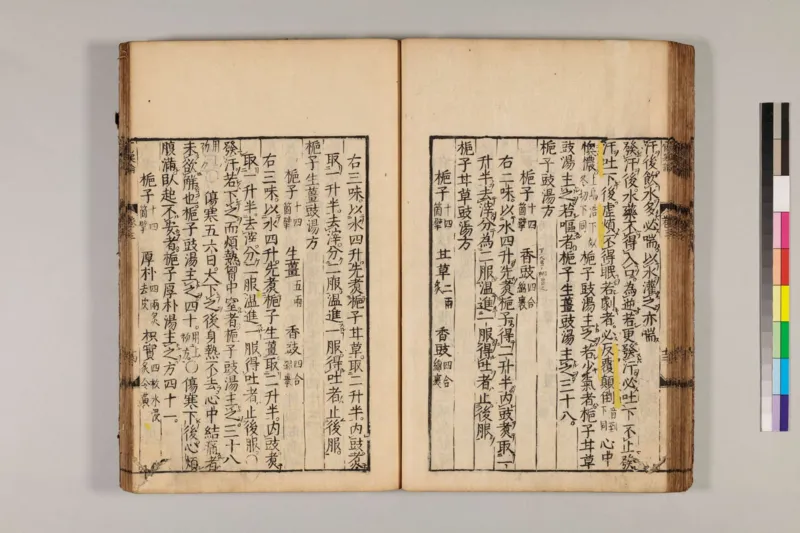 汗後飲水多必喘以水灌之亦喘
發汗後水藥不得入口為逆若更發汗必吐下不止發
汗吐下後虛煩不得眠若劇者必反覆顛倒音到下同心中
懊憹上烏浩下奴冬切下同梔子豉湯主之若少氣者梔子甘草
豉湯主之若嘔者梔子生薑豉湯主之三十八
梔子豉湯方
梔子十四箇擘 香豉四合綿裹
右二味以水四升先煑梔子得二升半內豉煑取一
升半去滓分為二服溫進一服得吐者止後服
梔子甘草豉湯方
梔子十四箇擘 甘草二兩炙 香豉四合綿裹
右三味以水四升先煑梔子甘草取二升半內豉煑
取一升半去滓分二服溫進一服得吐者止後服
梔子生薑豉湯方
梔子十四箇擘 生薑五兩 香豉四合綿裹
右三味以水四升先煑梔子生薑取二升半內豉煑
取一升半去滓分二服溫進一服得吐者止後服○
發汗若下之而煩熱胸中窒者梔子豉湯主之三十八
用上初方○傷寒五六日大下之後身熱不去心中結痛者
未欲解也梔子豉湯主之四十用上初方○傷寒下後心煩
腹滿臥起不安者梔子厚朴湯主之方四十一
梔子十四箇擘 厚朴四兩炙去皮 枳實四枚水浸炙令黃